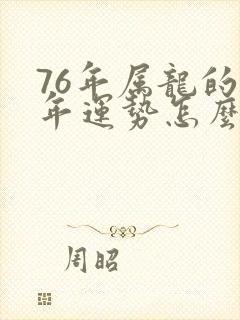 76年属龍的
年運勢怎麼
周昭